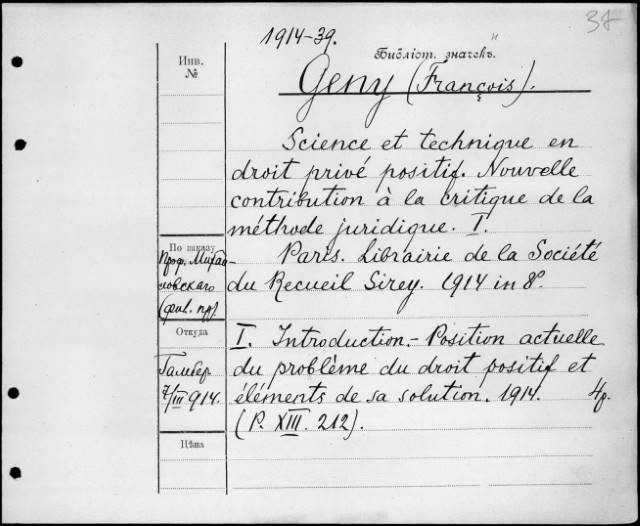 38
1914-39.
Библіот. значекъ.
Инв.
№
Geny (François).
Science et technique en
droit privé positif. Nouvelle
contribution à la critique de la
méthode juridique. I.
По заказу
Проф. Михай-
ловскаго
(фил. пр.)
Paris. Librairie de la Société
du Recueil Sirey. 1914 in 8º.
Откуда
Гамбер
7/III 914.
I. Introduction. - Position actuelle
du problème du droit positif et
éléments de sa solution. 1914. 4р.
(P. XIII. 212).
Цѣна